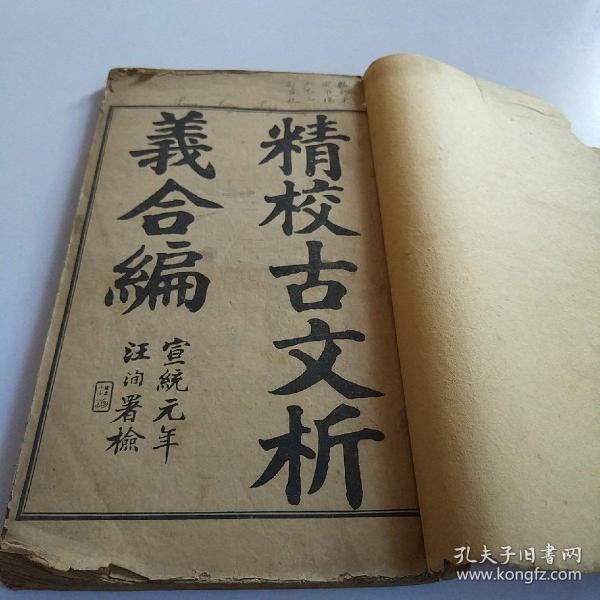 精校古文析
義合編
宣統元年
汪洵署檢
孔夫子旧书网
www.kongfz.com